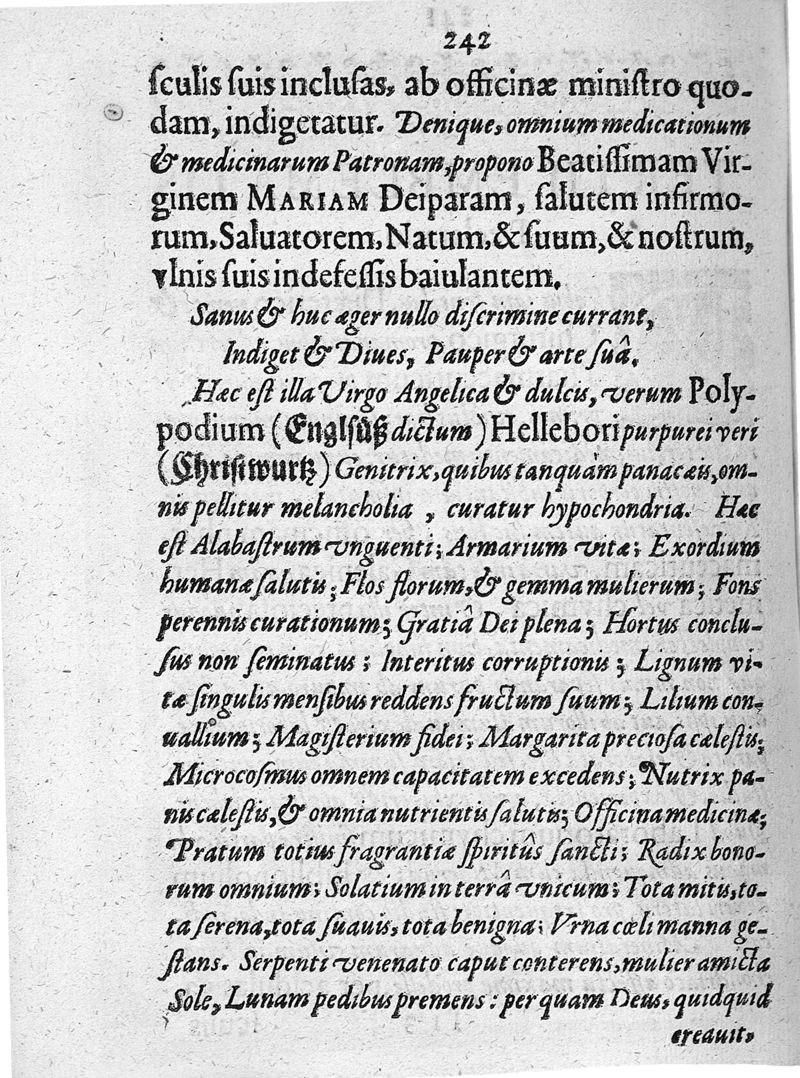 242
ſculis ſuis incluſas, ab officinæ miniſtro quo-
dam, indigetatur. Denique, omnium medicationum
& medicinarum Patronam, propono Beatiſſimam Vir-
ginem MARIAM Deiparam, ſalutem infirmo-
rum, Saluatorem, Natum, & ſuum, & noſtrum,
vlnis ſuis indefeſſis baiulantem.
Sanus & huc æger nullo diſcrimine currant,
Indiget & Diues, Pauper & arte ſuâ.
Hæc eſt illa Virgo Angelica & dulcis, verum Poly-
podium (Englſüß dictum) Hellebori purpurei veri
(Chriſtwurtz) Genitrix, quibus tanquàm panacæis, om-
nis pellitur melancholia, curatur hypochondria. Hæc
eſt Alabaſtrum vnguenti; Armarium vitæ; Exordium
humanæ ſalutis; Flos florum, & gemma mulierum; Fons
perennis curationum; Gratiâ Dei plena; Hortus conclu-
ſus non ſeminatus; Interitus corruptionis; Lignum vi-
tæ ſingulis menſibus reddens fructum ſuum; Lilium con-
uallium; Magiſterium fidei; Margarita precioſa cæleſtis;
Microcoſmus omnem capacitatem excedens; Nutrix pa-
nis cæleſtis, & omnia nutrientis ſalutis; Officina medicinæ;
Pratum totius fragrantiæ ſpiritûs ſancti; Radix bono-
rum omnium; Solatium in terrâ vnicum; Tota mitis, to-
ta ſerena, tota ſuauis, tota benigna; Vrna cœli manna ge-
ſtans. Serpenti venenato caput conterens, mulier amicta
Sole, Lunam pedibus premens: per quam Deus, quidquid
creauit,